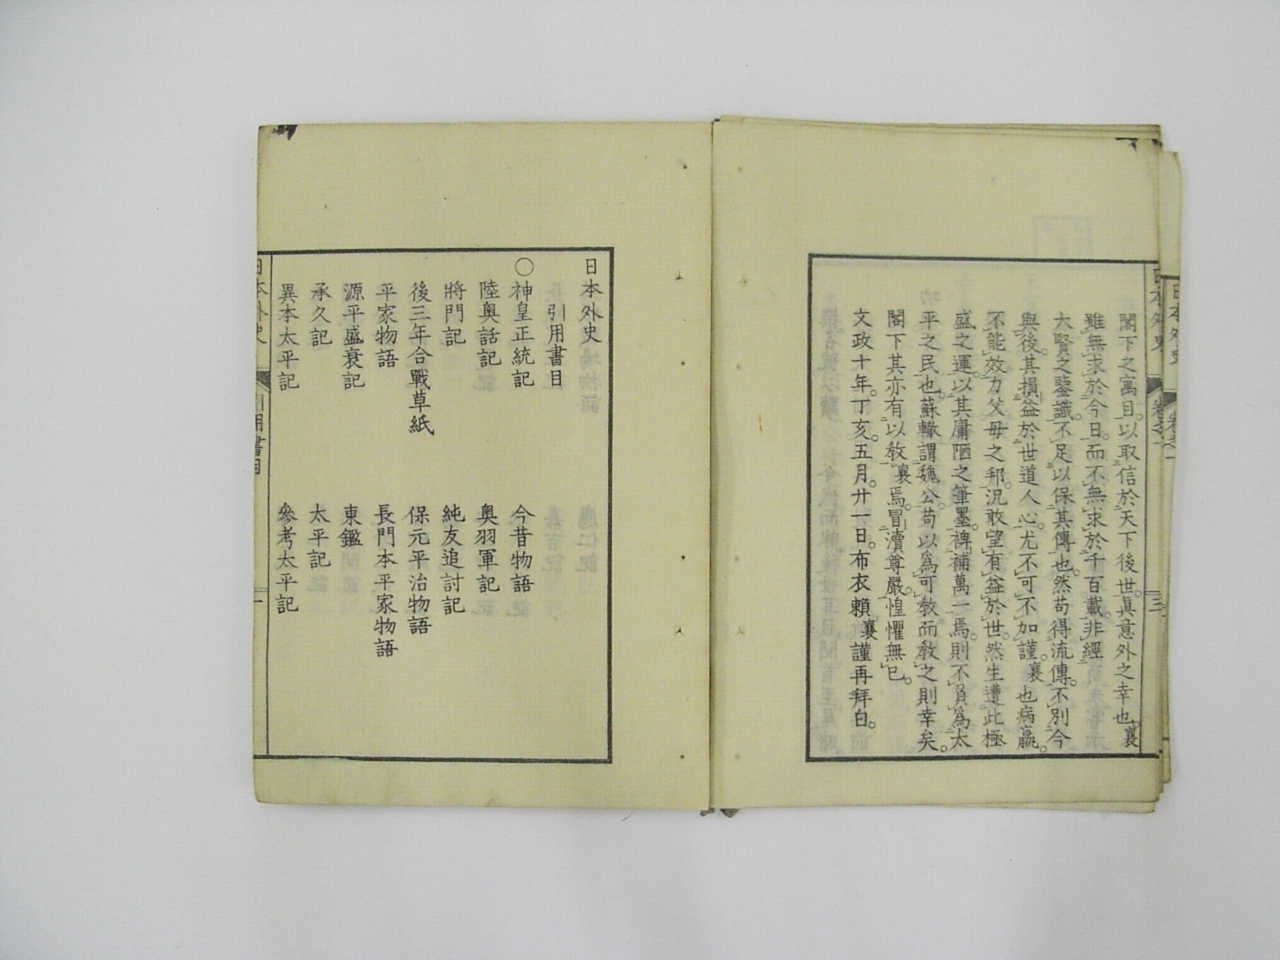 閣下之寓目。以取信於天下後世。眞意外之幸也。襄
雖無求於今日。而不無求於千百載。非經
大賢之鑒識。不足以保其傳也。然苟得流傳。不別今
與後。其損益於世道人心。尤不可不加謹。襄也病羸。
不能效力父母之邦。況敢望有益於世。然生遭此極
盛之運。以其庸陋之筆墨。裨補萬一焉。則不負爲太
平之民也。蘇轍謂魏公。苟以爲可教而教之則幸矣。
閣下其亦有以教襄焉。冒瀆尊嚴。惶懼無已。
文政十年。丁亥。五月。廿一日。布衣賴襄謹再拜白。
日本外史 卷之一 三
日本外史
引用書目
〇神皇正統記 今昔物語
陸奥話記 奥羽軍記
將門記 純友追討記
後三年合戰草紙 保元平治物語
平家物語 長門本平家物語
源平盛衰記 東鑑
承久記 太平記
異本太平記 參考太平記
日本外史 引用書目 一